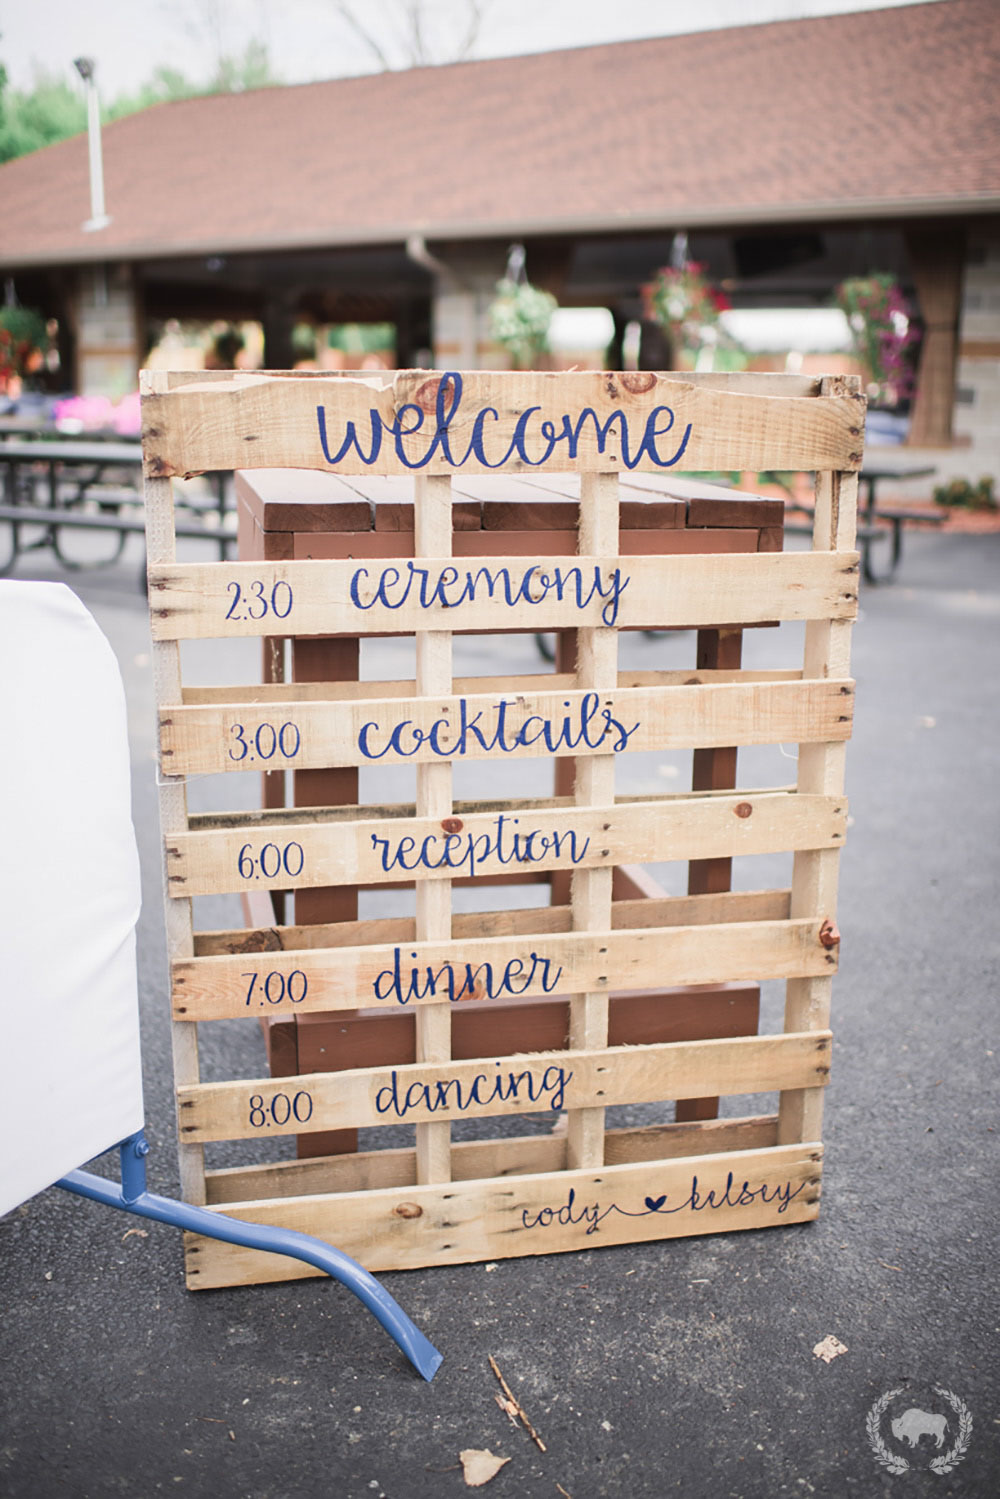 welcome
2:30 ceremony
3:00 cocktails
6:00 reception
7:00 dinner
8:00 dancing
cody kelsey